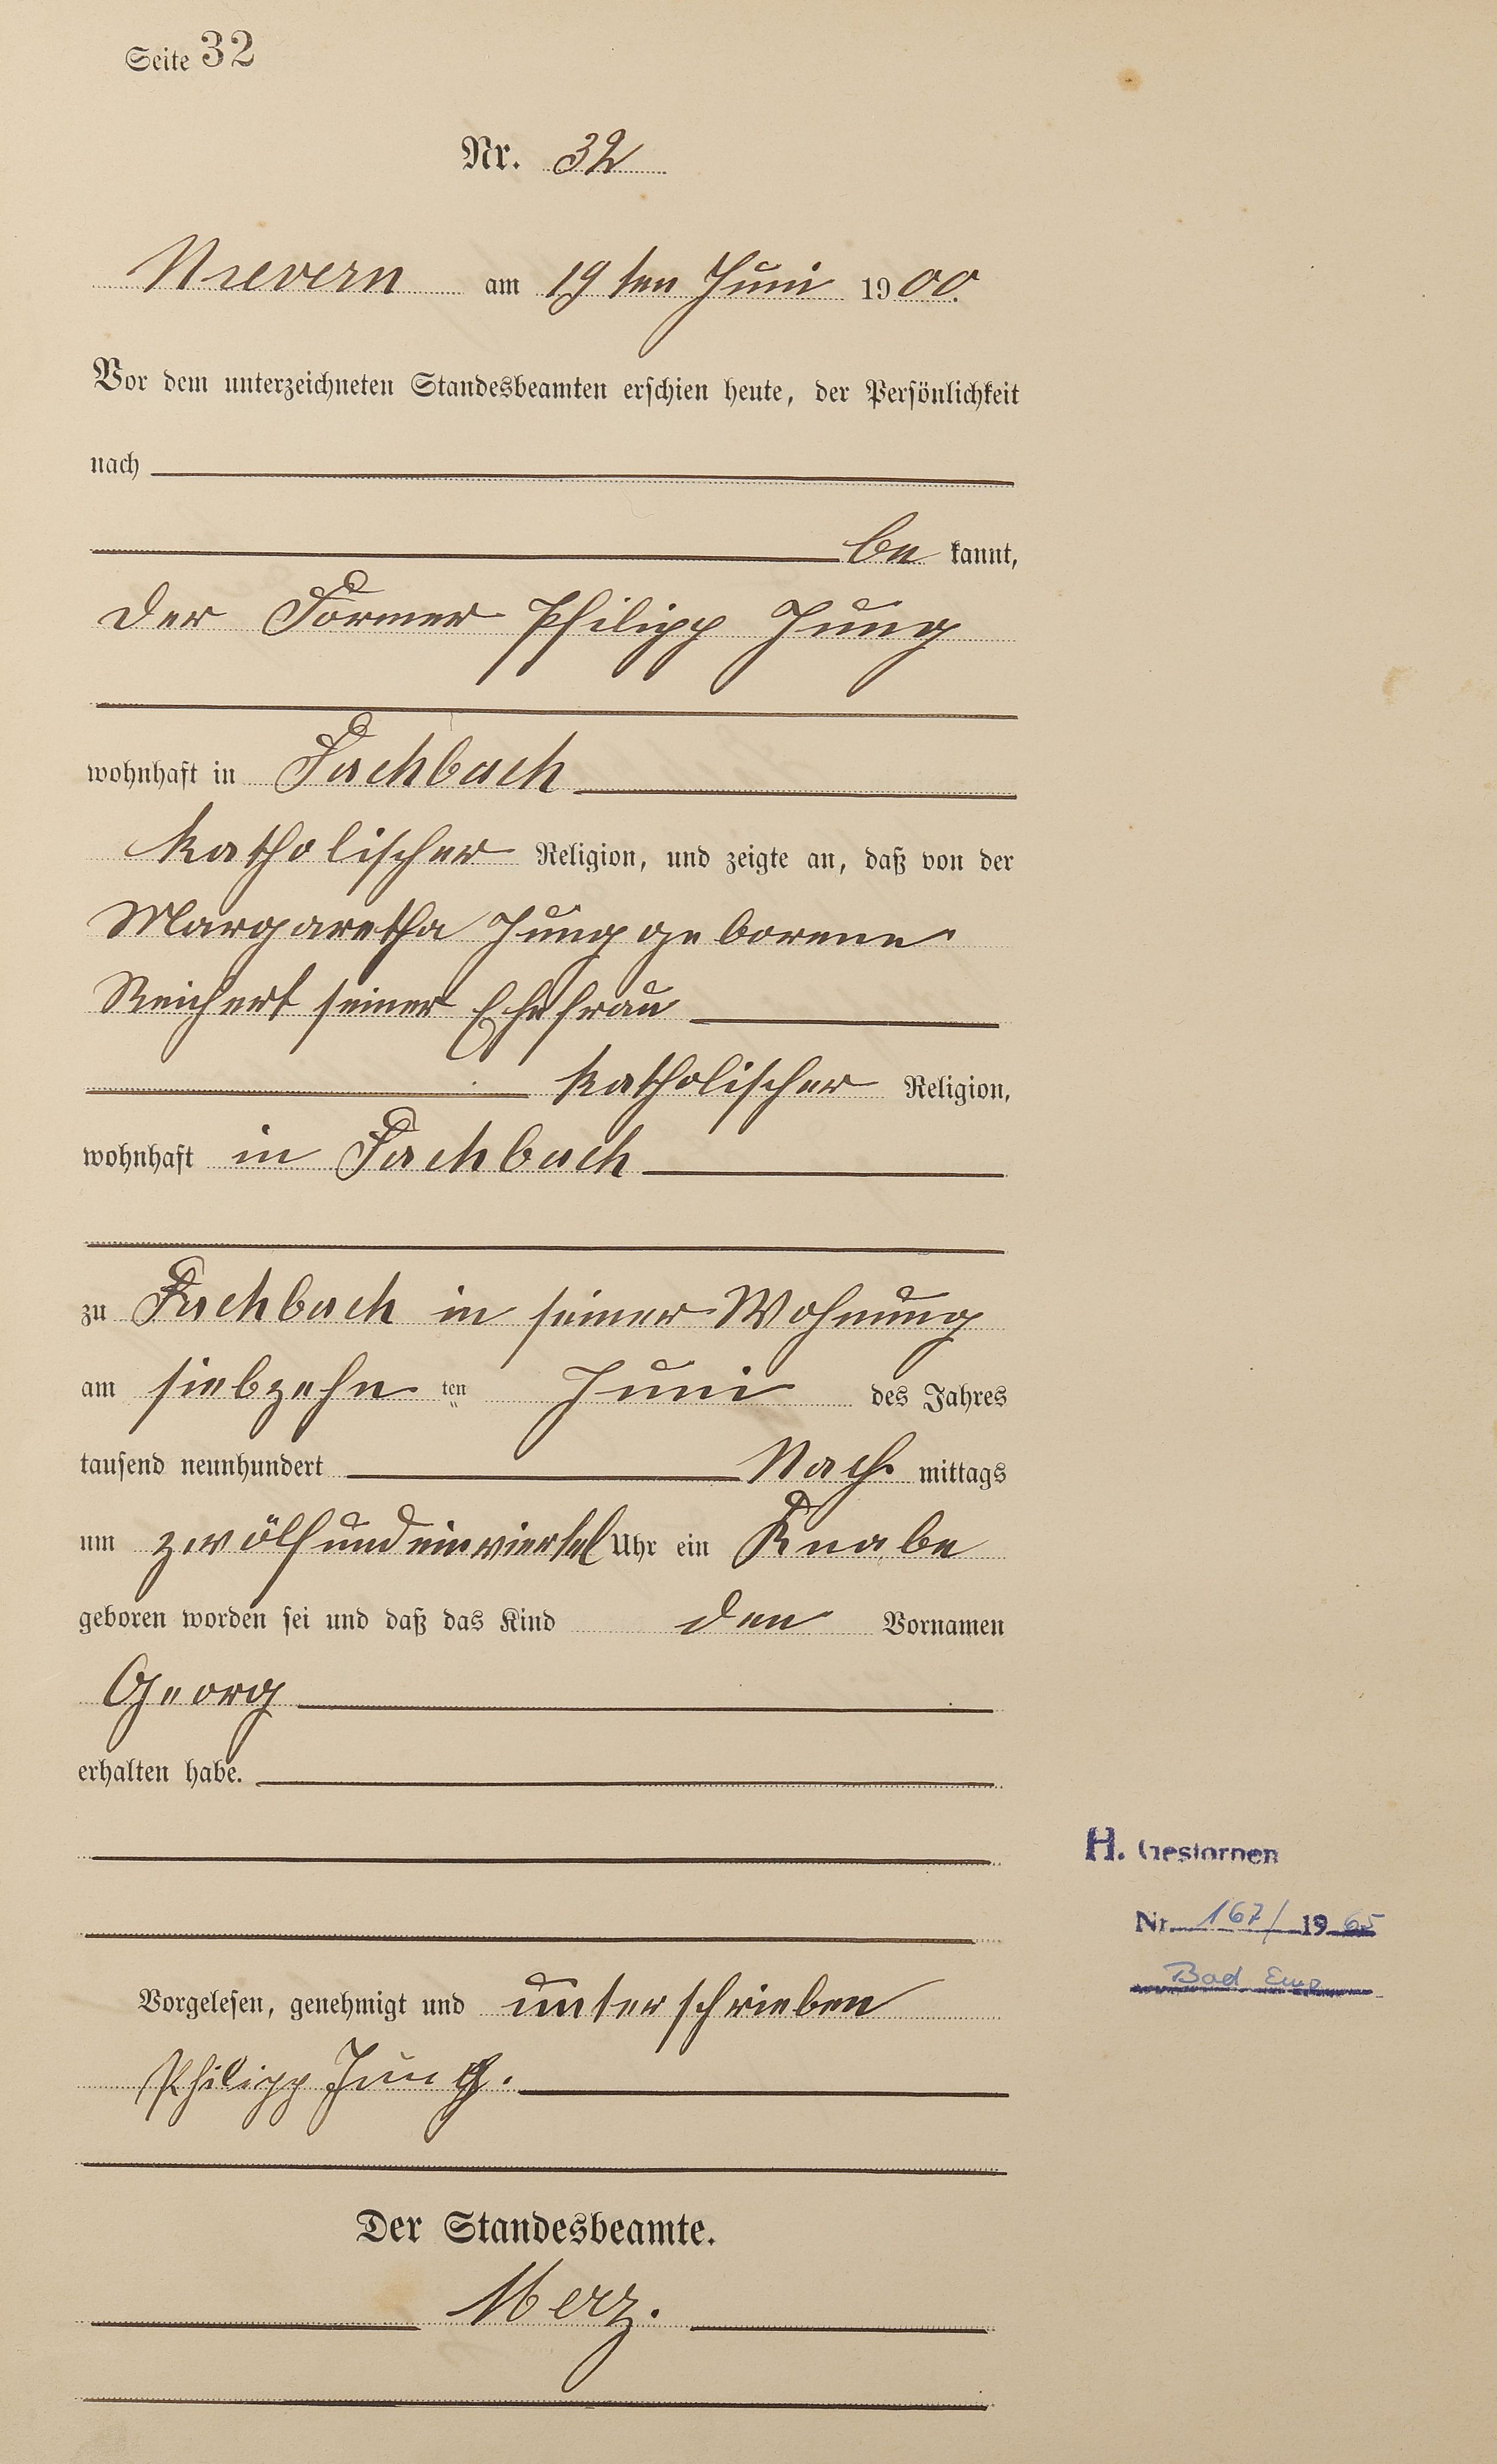 Seite 32
Nr. 32
Nievern am 19ten Juni 1900.
Vor dem unterzeichneten Standesbeamten erschien heute, der Persönlichkeit
nach
be kannt,
der Former Philipp Jung
wohnhaft in Fachbach
katholischer Religion, und zeigte an, daß von der
Margaretha Jung geborene
Reichert seiner Ehefrau
katholischer Religion,
wohnhaft in Fachbach
zu Fachbach in seiner Wohnung
am siebzehn ten Juni des Jahres
tausend neunhundert Nach mittags
um zwölf und ein viertel Uhr ein Knabe
geboren worden sei und daß das Kind den Vornamen
Georg
erhalten habe.
Vorgelesen, genehmigt und unterschrieben
Philipp Jung.
Der Standesbeamte.
Merz.
H. Gestorben
Nr. 167/1965
Bad Ems